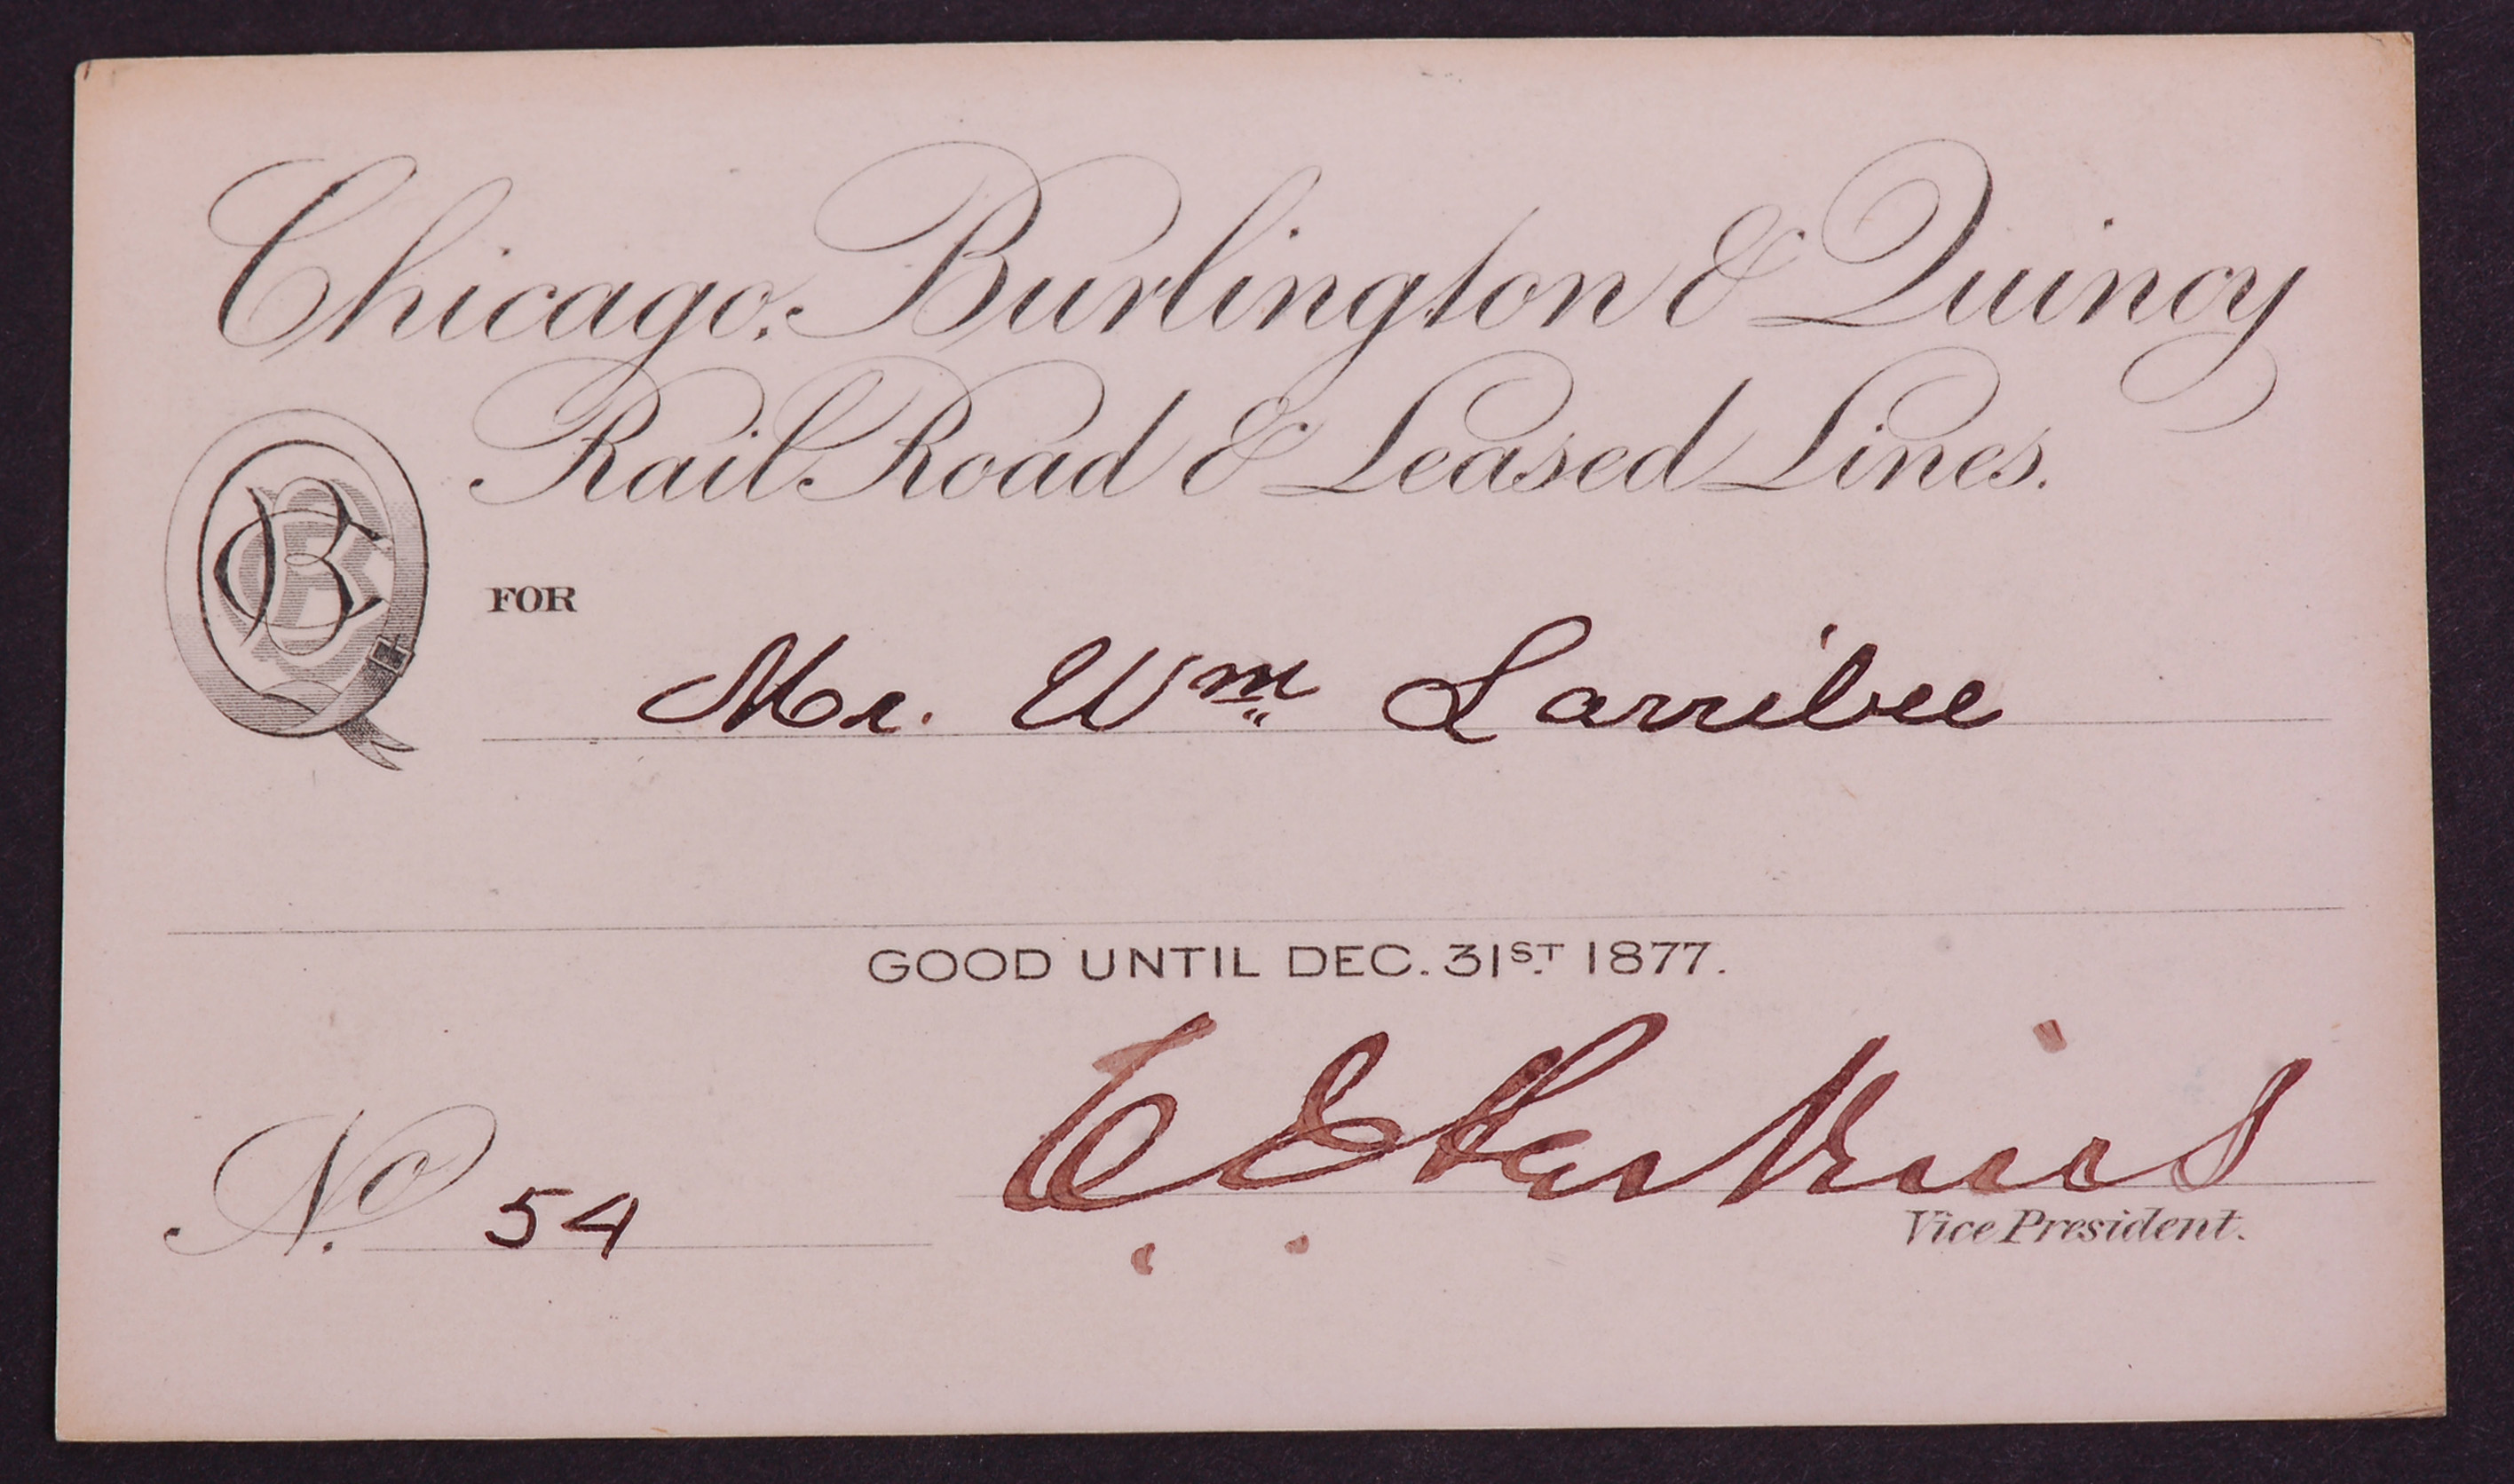 Chicago, Burlington & Quincy
Rail Road & Leased Lines.
CBQ
FOR
Mr. Wm Larribee
GOOD UNTIL DEC. 31ST 1877.
C E Perkins
Vice President.
No. 54